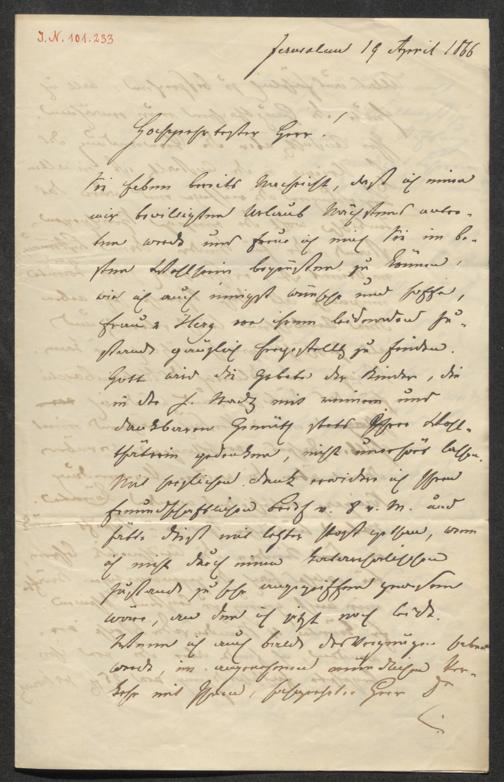 J.N. 101.233
Jerusalem 19 April 1866
Hochgeehrtester Herr!
Sie haben bereits Nachricht, daß ich meinen
mir bewilligten Urlaub nächstens antre-
ten werde und freue ich mich Sie im be-
sten Wohlsein begrüßen zu können,
wie ich auch innigst wünsche und hoffe,
Frau v. Herz von ihrem leidenden Zu-
stande gänzlich hergestellt zu finden.
Gott wird die Gebete der Kinder, die
in der h. Stadt mit reinem und
dankbarem Gemüth stets Ihrer Wohl-
thäterin gedenken, nicht unerhört lassen.
Mit herzlichem Dank erwidere ich Ihren
freundschaftlichen Brief v. 8 v. M. und
hätte dieß mit letzter Post gethan, wenn
ich nicht durch einen katarrhalischen
Zustand zu sehr angegriffen gewesen
wäre, an dem ich jetzt noch leide.
Wenn ich auch bald das Vergnügen haben
werde, im angenehmen mündlichen Ver-
kehr mit Ihnen, hochgeehrter Herr